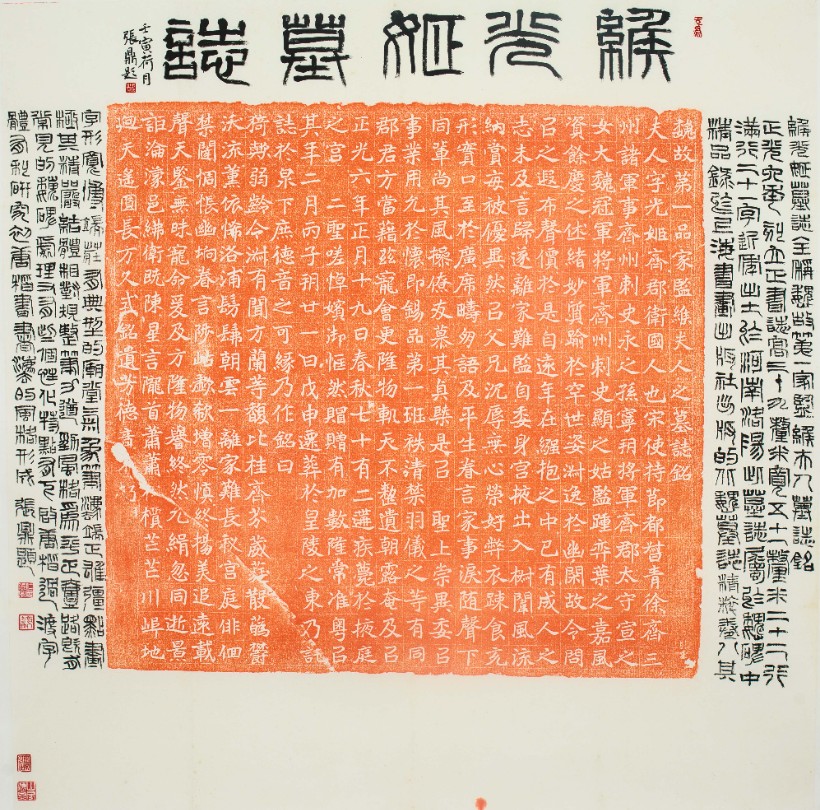 緱光姬墓誌
壬寅荷月
張鼎題
緱光姬墓誌全稱魏故第一家監緱夫人墓誌銘
正光六年刻立正書誌高三十九釐米寬五十一釐米二十二行
滿行二十字近年出土於河南洛陽此墓誌屬於魏碑中
精品錄於上海書畫出版社出版的北魏墓誌精粹卷八其
魏故第一品家監緱夫人之墓誌銘
夫人字光姬齊郡衛國人也宋使持節都督青徐齊三
州諸軍事齊州刺史永之孫寧朔將軍齊郡太守宣之
女大魏冠軍將軍齊州刺史顯之姑監踵弈葉之嘉風
資餘慶之休緒妙質踰於罕世姿淑逸於幽閑故令問
㠯之遐布聲價於是自遠年在繈抱之中已有成人之
志未及言歸遂離家難監自委身宮掖出入樹闈風流
納賞每被優異然㠯父兄沉辱無心榮好弊衣踈食充
形實口至於廣席疇勿語及平生眷言家事淚随聲下
同輩尚其風操僚友慕其貞槩是㠯 聖上崇異委㠯
事業用允於懷即錫品第一班袟清禁羽儀之等有同
郡君方當藉兹寵會更陞物軌天不慭遺朝露奄及㠯
正光六年正月十九日春秋七十有二遘疾薨於掖庭
之宮 二聖嗟悼嬪御然賵贈有加數隆常准粵㠯
其年二月丙子朔廿一日戊申遷葬於皇陵之東乃託
誌於泉下庶德音之可緣乃作銘曰
猗歟弱齡令淑有聞方蘭等馥比桂齊芬歲
沃流薰依俙洛浦髣髴朝雲一離家難長秋宮庭俳佪
禁闥惆悵幽埛眷言阡陌歔欷增零慎終揚美追遠載
聲天鑒無昧寵命爰及方隆物譽終然允緝忽同逝景
詎淪濛邑紼衛既陳星言隴首蕭蕭木櫬芒芒川埠地
迥天遥圓長万久式銘遺芳德音不朽
字形寬博端莊有典型的廟堂氣象筆法端正雄彊點畫
極其精嚴結體相對規整筆力遒勁風格爲平正寬疏或
常見的魏碑處理又有些個性化特點爲下啟唐楷過渡字
體有利研究初唐楷書書法的風格形成 張鼎題